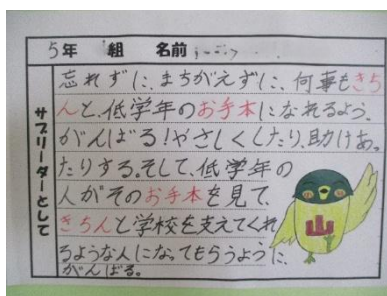 5年 組 名前
サブリーダーとして
忘れずに、まちがえずに、何事もきち
んと、低学年のお手本になれるよう、
がんばる!やさしくしたり、助けあっ
たりする。そして、低学年の
人がそのお手本を見て、
きちんと学校を支えてくれ
るような人になってもらうように、
がんばる。
山